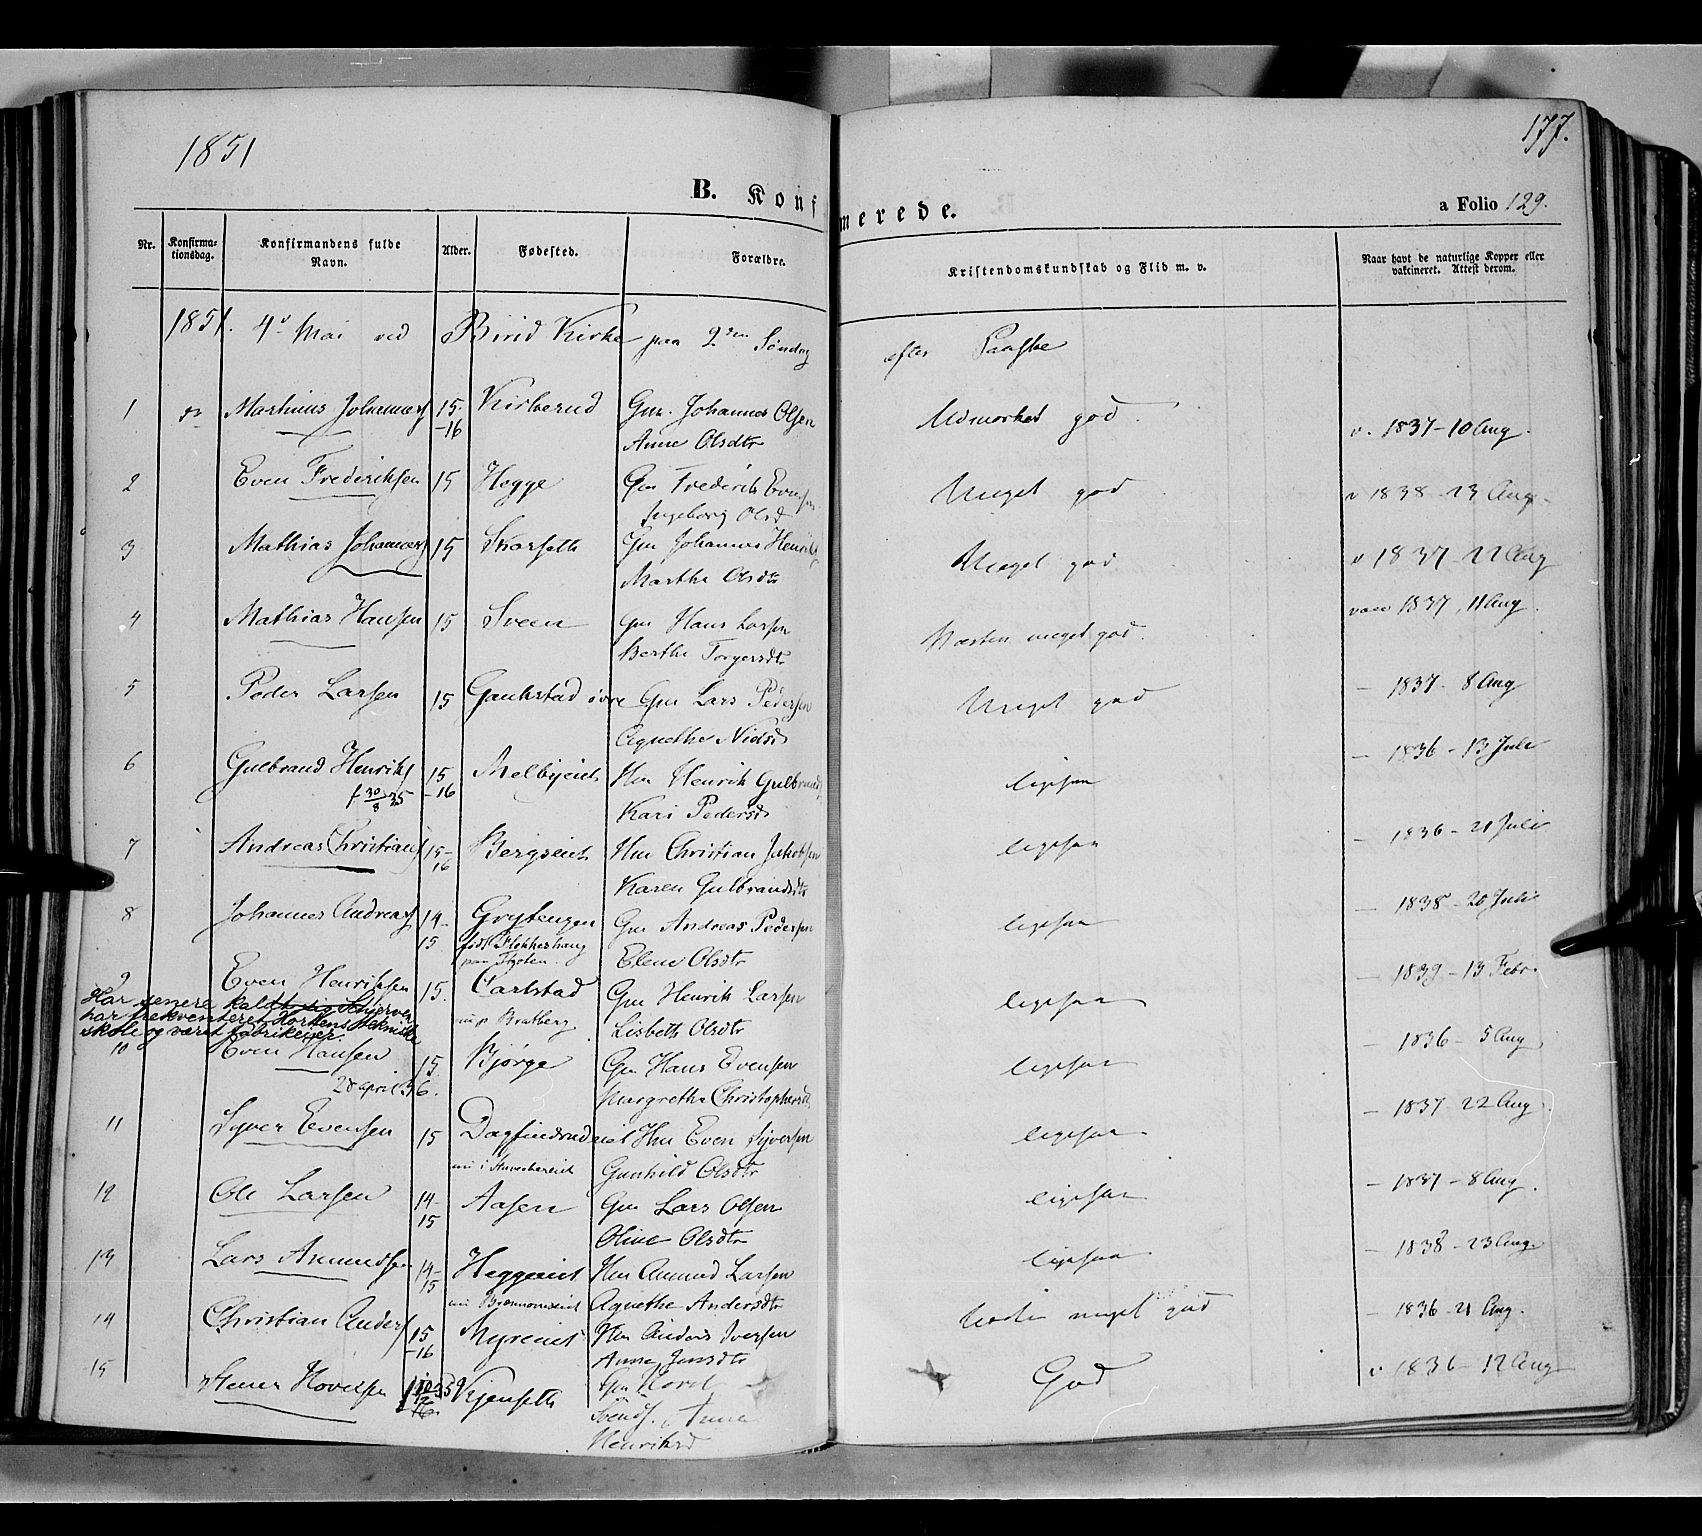 1851
177.
B. Konfirmerede.
a Folio 129.
Nr. Konfirmationsdag. Konfirmandens fulde Navn. Alder. Fødested. Forældre. Kristendomskundskab og Flid m. v. Naar havt de naturlige Kopper eller vakcineret. Attest derom.
1851. 4de Mai ved Birid Kirke paa 2den Søndag efter Paaske
1 Mathias Johannesf 15- Kirkerud Gm. Johannes Olsen Udmærket god. v. 1837-10 Aug.
-16 Anne Olsdtr
2 Even Frederiksen 15 Hegge Gm Frederik Evensen Meget god v 1838-23 Aug.
Ingeborg Olsd
3 Mathias Johannesf 15 Skarseth Gm Johannes Henriks Meget god v 1837-22 Aug
Marthe Olsdtr
4 Mathias Hansen 15 Sveen Gm Hans Larsen Næsten meget god. vacc 1837, 11 Aug.
Berthe Torgersdtr
5 Peder Larsen 15 Gaukstad øvre Gm Lars Pedersen Meget god — 1837- 8 Aug
Agnethe Nielsd
6 Gulbrand Henriks 15 Melbyeiet Hm Henrik Gulbrands ligesaa — 1836-13 Juli
f 30/8 35 -16 Kari Pedersd
7 Andreas Christians 15- Bergseiet Hm Christian Jakobsen ligesaa — 1836-21 Juli
16 Karen Gulbrandsdtr
8 Johannes Andreasf 14- Grytengen Gm Andreas Pedersen ligesaa — 1838-20 Juli
15 født Flokkeshaug Elene Olsdtr
paa Thoten.
9 Even Henriksen 15. Carlstad Gm Henrik Larsen ligesaa — 1839-13 Febr.
Har senere kaldt sig Skjerven
har frekventeret Hortens tekniske
skole og været fabrikeier.
nu p Bratberg Lisbeth Olsdtr
10 Even Hansen 15 Bjørge Gm Hans Evensen ligesaa — 1836-5 Aug
28 april 36. Margrethe Christophersdtr
11 Syver Evensen 15 Dagfindrudeiet Hm Even Syversen ligesaa — 1837-22 Aug.
Gunhild Olsdtr
12 Ole Larsen 14- Aasen Gm Lars Olsen ligesaa — 1837-8 Aug.
15 Oline Olsdtr
13 Lars Amundsen 14- Heggeeiet Hm Amund Larsen ligesaa — 1838-23 Aug.
15 Agnethe Andersdtr
14 Christian Andersf 15 Myreeiet Hm Anders Iversen Næsten meget god — 1836-21 Aug.
-16 Anne Jensdtr
15 Hovelsen Kjenseth Gm Hovel God v 1836-12 Aug
Svends. Anne
Henriksd